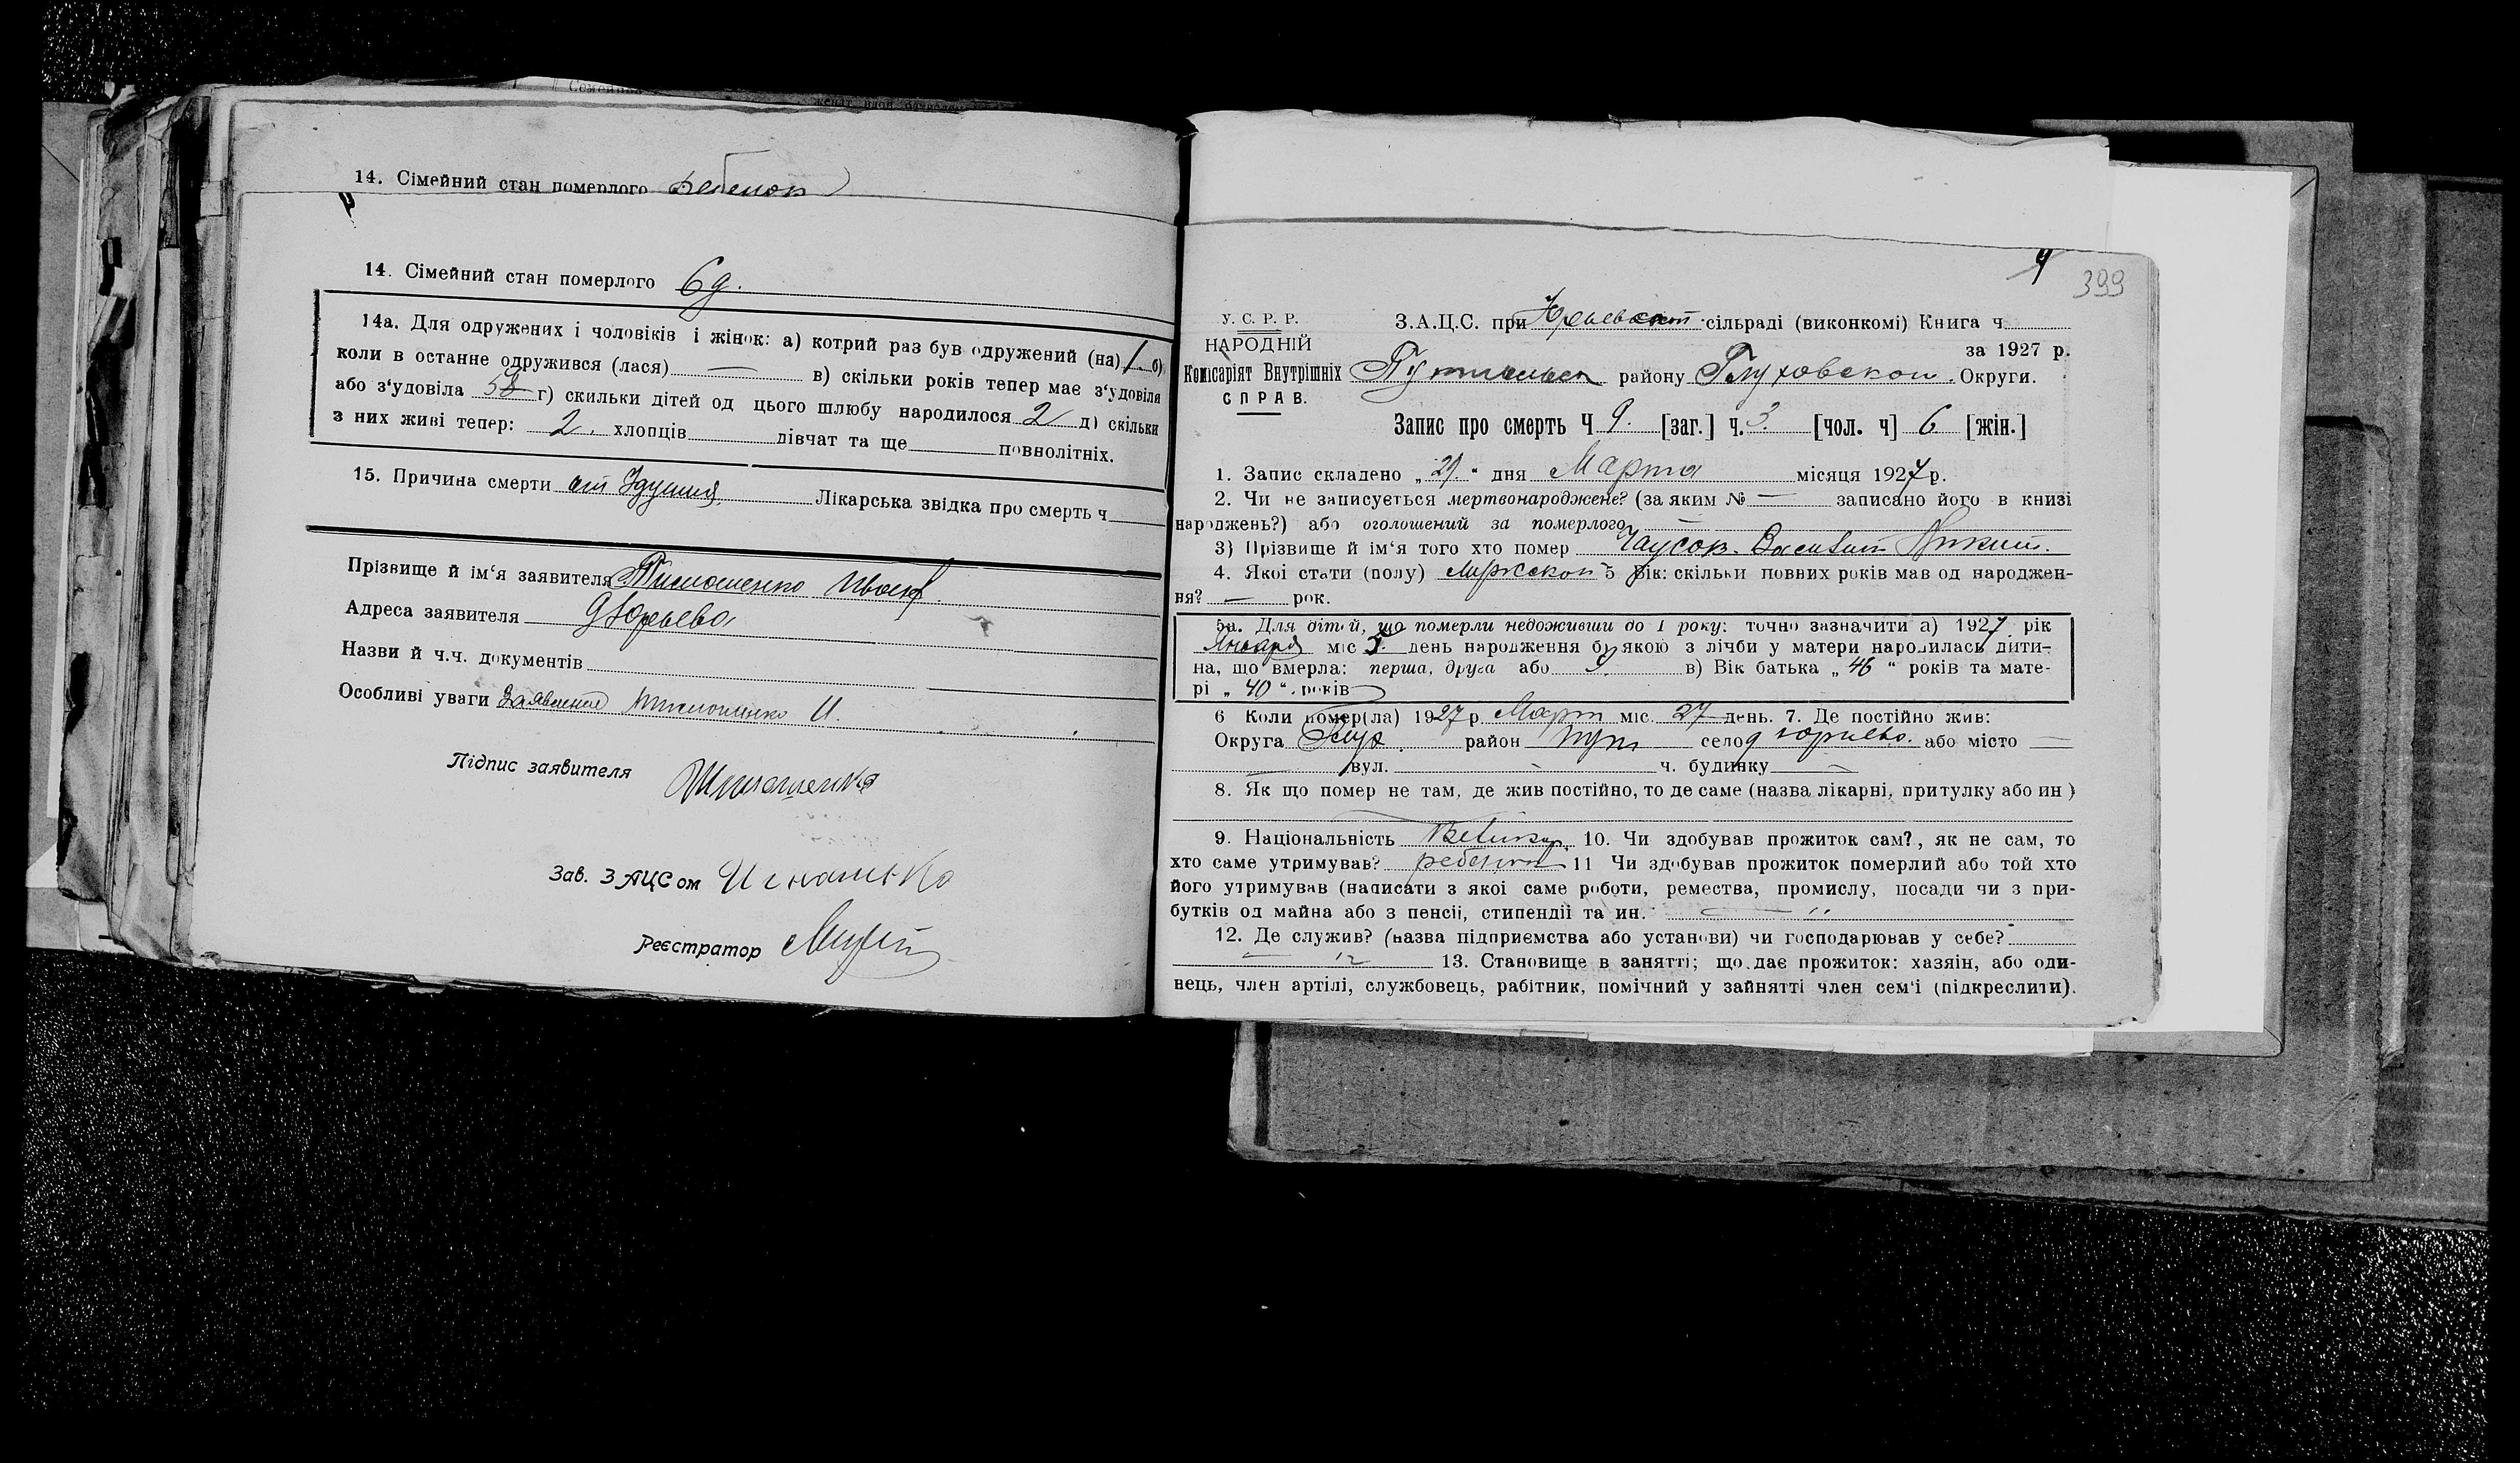 14. Сімейний стан померлого ребенок
14. Сімейний стан померлого
14а. Для одружених і чоловіків і жінок: а) котрий раз був одружений (на) 1 б)
коли в останне одружився (лася) — в) скільки років тепер має з‘удовіла
або з‘удовіла г) скильки дітей од цього шлюбу народилося 2 д) скільки
з них живі тепер: 2. хлопців дівчат та ще повнолітніх.
15. Причина смерти от Удушия Лікарська звідка про смерть ч
Прізвище й ім‘я заявителя Тимошенко Иван
Адреса заявителя д Юрьева
Назви й ч.ч. документів
Особливі уваги Заявление Тимошенко И.
Підпис заявителя Тимошенко
Зав. ЗАЦСом Игнатенко
Реєстратор
9
399
У. С. Р. Р.
НАРОДНІЙ
Комісаріят Внутрішніх
СПРАВ.
З.А.Ц.С. при Юрьевской сільраді (виконкомі) Книга ч
за 1927 р.
Путивльск району Глуховской Округи.
Запис про смерть Ч 9. [заг.] ч. 3. [чол. ч] 6 [жін.]
1. Запис складено „29.“ дня Марта місяця 1927 р.
2. Чи не записується мертвонароджене? (за яким № — записано його в книзі
народжень?) або оголошений за померлого —
3) Прізвище й ім‘я того хто помер Чаусов. Василий Никит.
4. Якої стати (полу) Мужской 5 Вік: скільки повних років мав од народжен-
ня? — рок.
5а. Для дітей, що померли недоживши до 1 року: точно зазначити а) 1927 рік
Января міс 5. день народження б) якою з лічби у матери народилась дити-
на, що вмерла: перша, друга або 9. в) Вік батька „46“ років та мате-
рі „40“. років
6 Коли помер(ла) 1927 р. Март міс. 27 день. 7. Де постійно жив:
Округа Глух. район Пут село д Юрьево. або місто —
— вул. — ч. будинку —
8. Як що помер не там, де жив постійно, то де саме (назва лікарні, притулку або ин )
9. Національність Великор. 10. Чи здобував прожиток сам?, як не сам, то
хто саме утримував? ребенок 11 Чи здобував прожиток померлий або той хто
його утримував (написати з якоі саме роботи, ремества, промислу, посади чи з при-
бутків од майна або з пенсії, стипендії та ин. — "
12. Де служив? (назва підприємства або установи) чи господарював у себе?
— " 13. Становище в занятті; що дає прожиток: хазяін, або оди-
нець, член артілі, службовець, рабітник, помічний у зайнятті член сем‘і (підкреслити).